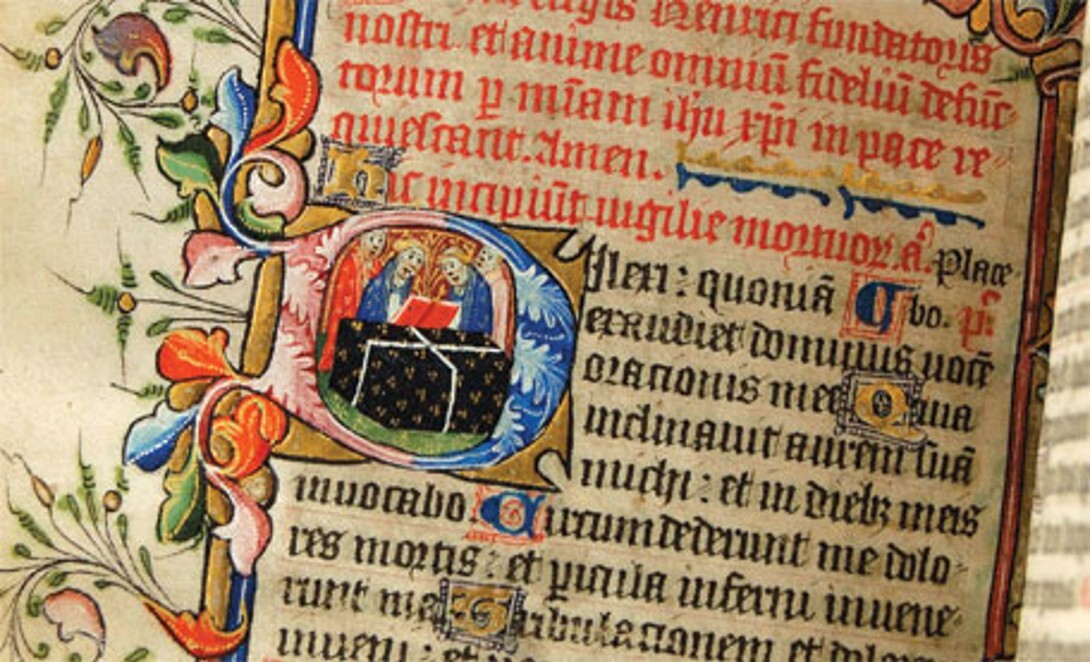 regis Henrici fundatoris
nostri et anime omniū fideliū defūc-
torum p̲ mīam ihu xp̄i in pace re-
quiescant. Amen.
Hic incipiūt uigilie mortuoꝝ. ā. Place
Dilexi: quoniā bo. p̄s
exaudiet dominus uocē
orationis mee Quia
inclinauit aurem suā
michi: et in diebꝫ meis
inuocabo. Circumdederunt me dolo-
res mortis: et p̲icula inferni inuene-
runt me Tribulacionem et dolorem
inueni: et